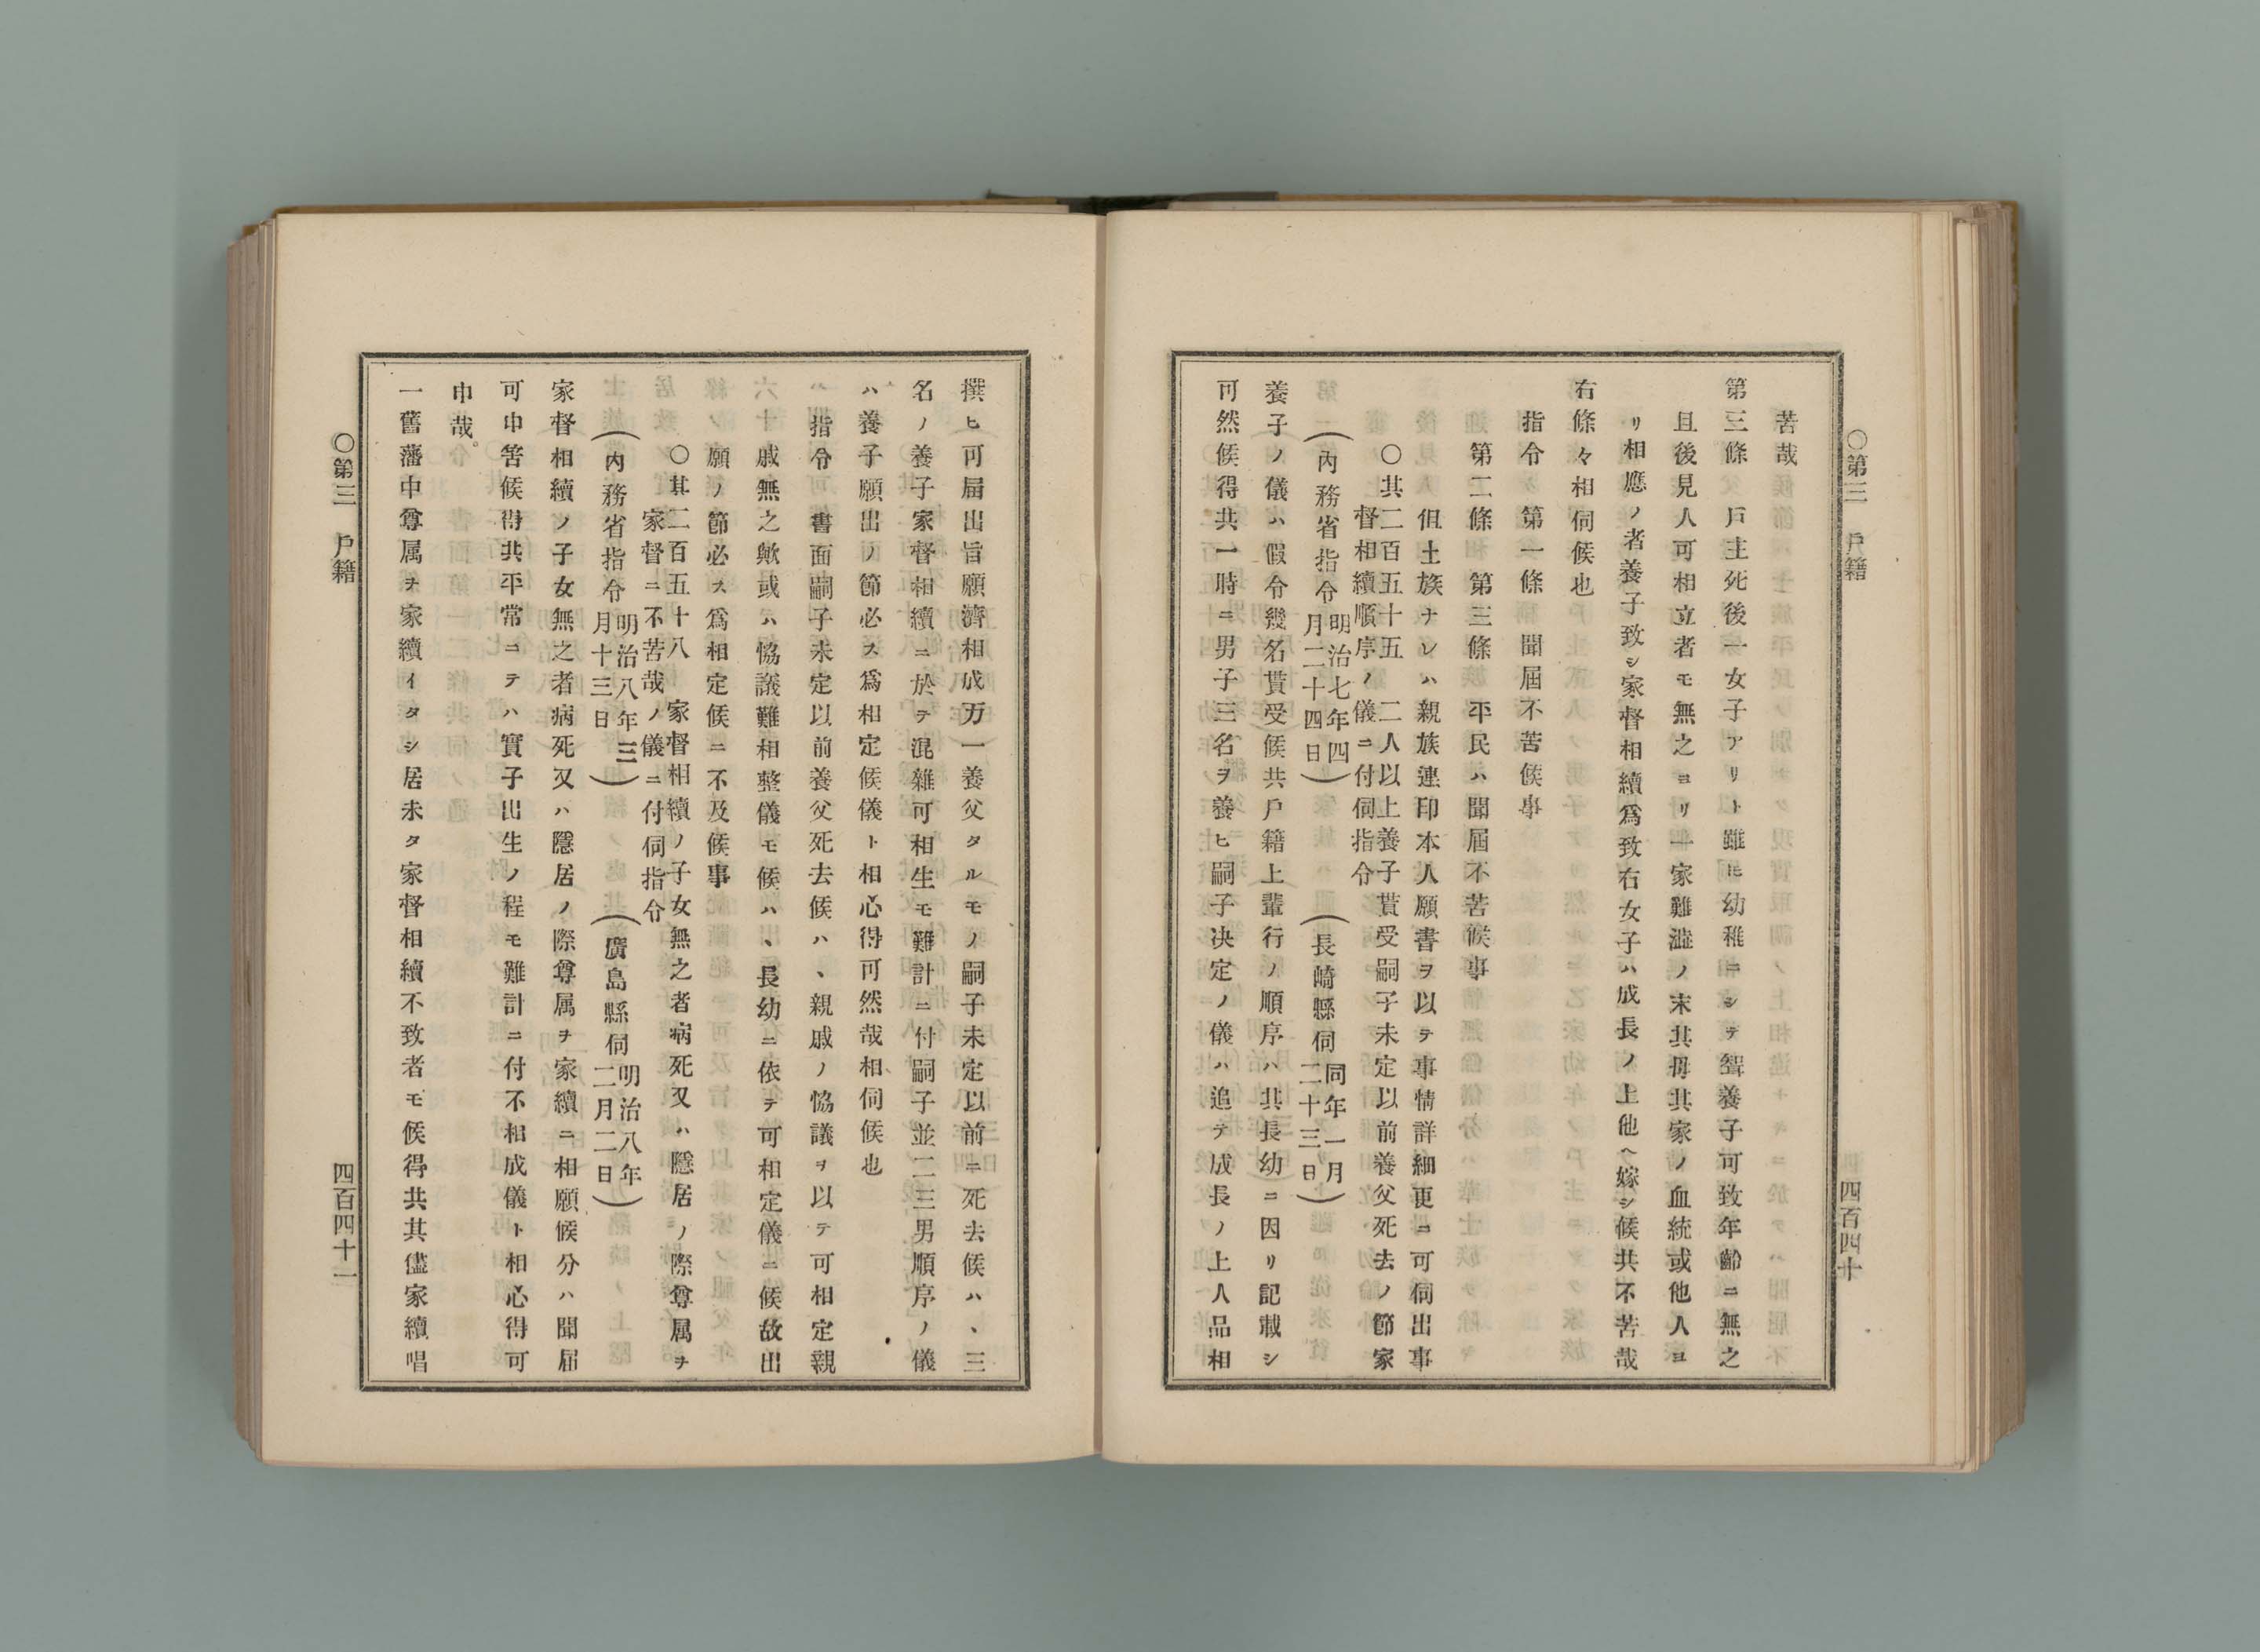 ○第三　戶籍
苦哉
第三條　戶主死後一女子アリト雖㆑幼稚ニシテ聟養子可致年齡ニ無之
且後見人可相立者モ無之ヨリ一家難澁ノ末其母其家ノ血統或他人ヨ
リ相應ノ者養子致シ家督相續爲致右女子ハ成長ノ上他ヘ嫁シ候共不苦哉
右條々相伺候也
指令　第一條　聞屆不苦候事
第二條　第三條　平民ハ聞屆不苦候事
但士族ナレハ親族連印本人願書ヲ以テ事情詳細更ニ可伺出事
○其二百五十五　二人以上養子貰受嗣子未定以前養父死去ノ節家
督相續順序ノ儀ニ付伺指令
（內務省指令　明治七年四月二十四日）　（長崎縣伺　同年一月二十三日）
養子ノ儀ハ假令幾名貰受候共戶籍上輩行ノ順序ハ其長幼ニ因リ記載シ
可然候得共一時ニ男子三名ヲ養ヒ嗣子決定ノ儀ハ追テ成長ノ上人品相
四百四十
撰ヒ可屆出旨願濟相成万一養父タルモノ嗣子未定以前ニ死去候ハヽ三
名ノ養子家督相續ニ於テ混雜可相生モ難計ニ付嗣子並二三男順序ノ儀
ハ養子願出ノ節必ス爲相定候儀ト相心得可然哉相伺候也
指令　書面嗣子未定以前養父死去候ハヽ親戚ノ恊議ヲ以テ可相定親
戚無之歟或ハ恊議難相整儀モ候ハヽ長幼ニ依テ可相定儀ニ候故出
願ノ節必ス爲相定候ニ不及候事
○其二百五十八　家督相續ノ子女無之者病死又ハ隱居ノ際尊属ヲ
家督ニ不苦哉ノ儀ニ付伺指令
（內務省指令　明治八年三月十三日）　（廣島縣伺　明治八年二月二日）
家督相續ノ子女無之者病死又ハ隱居ノ際尊属ヲ家續ニ相願候分ハ聞屆
可申筈候得共平常ニテハ實子出生ノ程モ難計ニ付不相成儀ト相心得可
申哉。
一舊藩中尊属ヲ家續イタシ居未タ家督相續不致者モ候得共其儘家續唱
○第三　戶籍
四百四十一